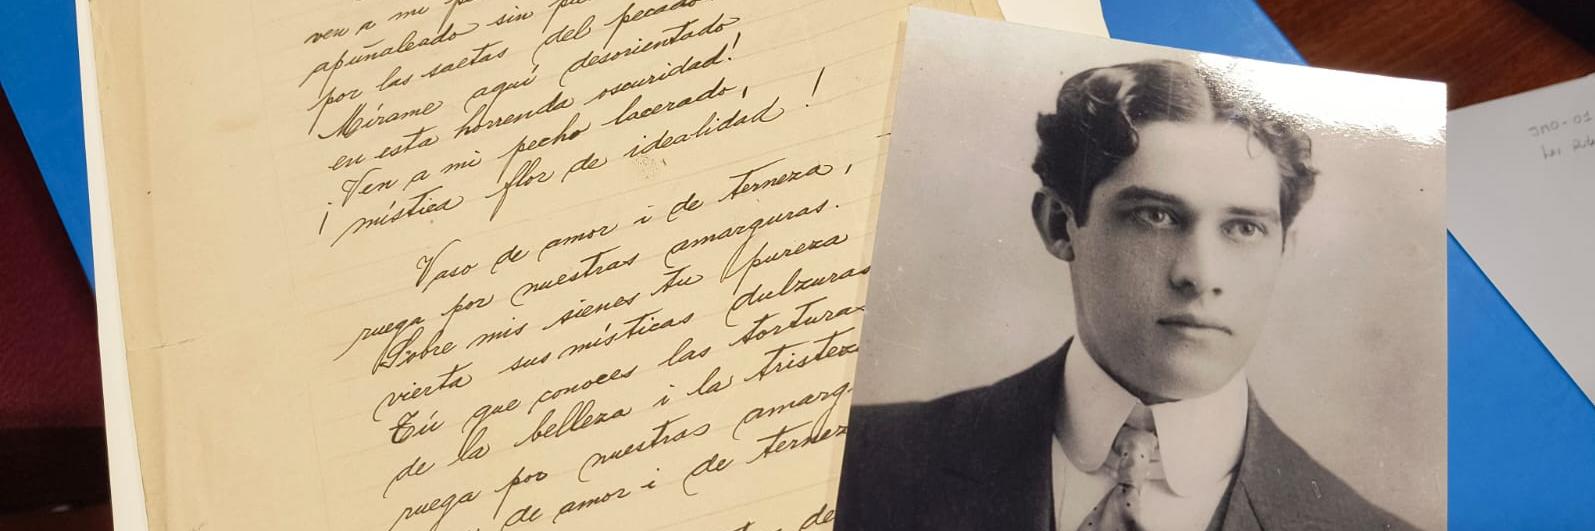 ven a mi
apuñaleado sin
por las saetas del pecado
Mírame aquí desorientado
en esta horrenda oscuridad!
Ven a mi pecho lacerado,
¡mística flor de idealidad!
Vaso de amor i de terneza,
ruega por nuestras amarguras.
Sobre mis sienes tu pureza
vierta sus místicas dulzuras
Tú que conoces las tortura
de la belleza i la tristez
ruega por nuestras amarg
de amor i de ternez
de
JMO-01